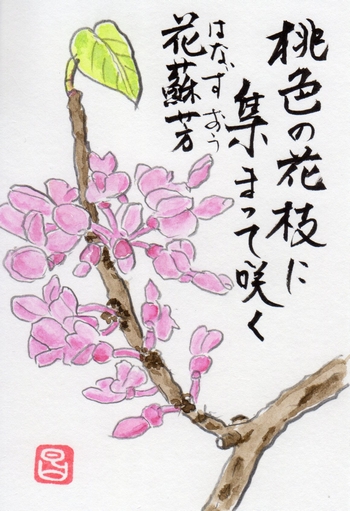 桃色の花枝に
集まって咲く
はなずおう
花蘇芳